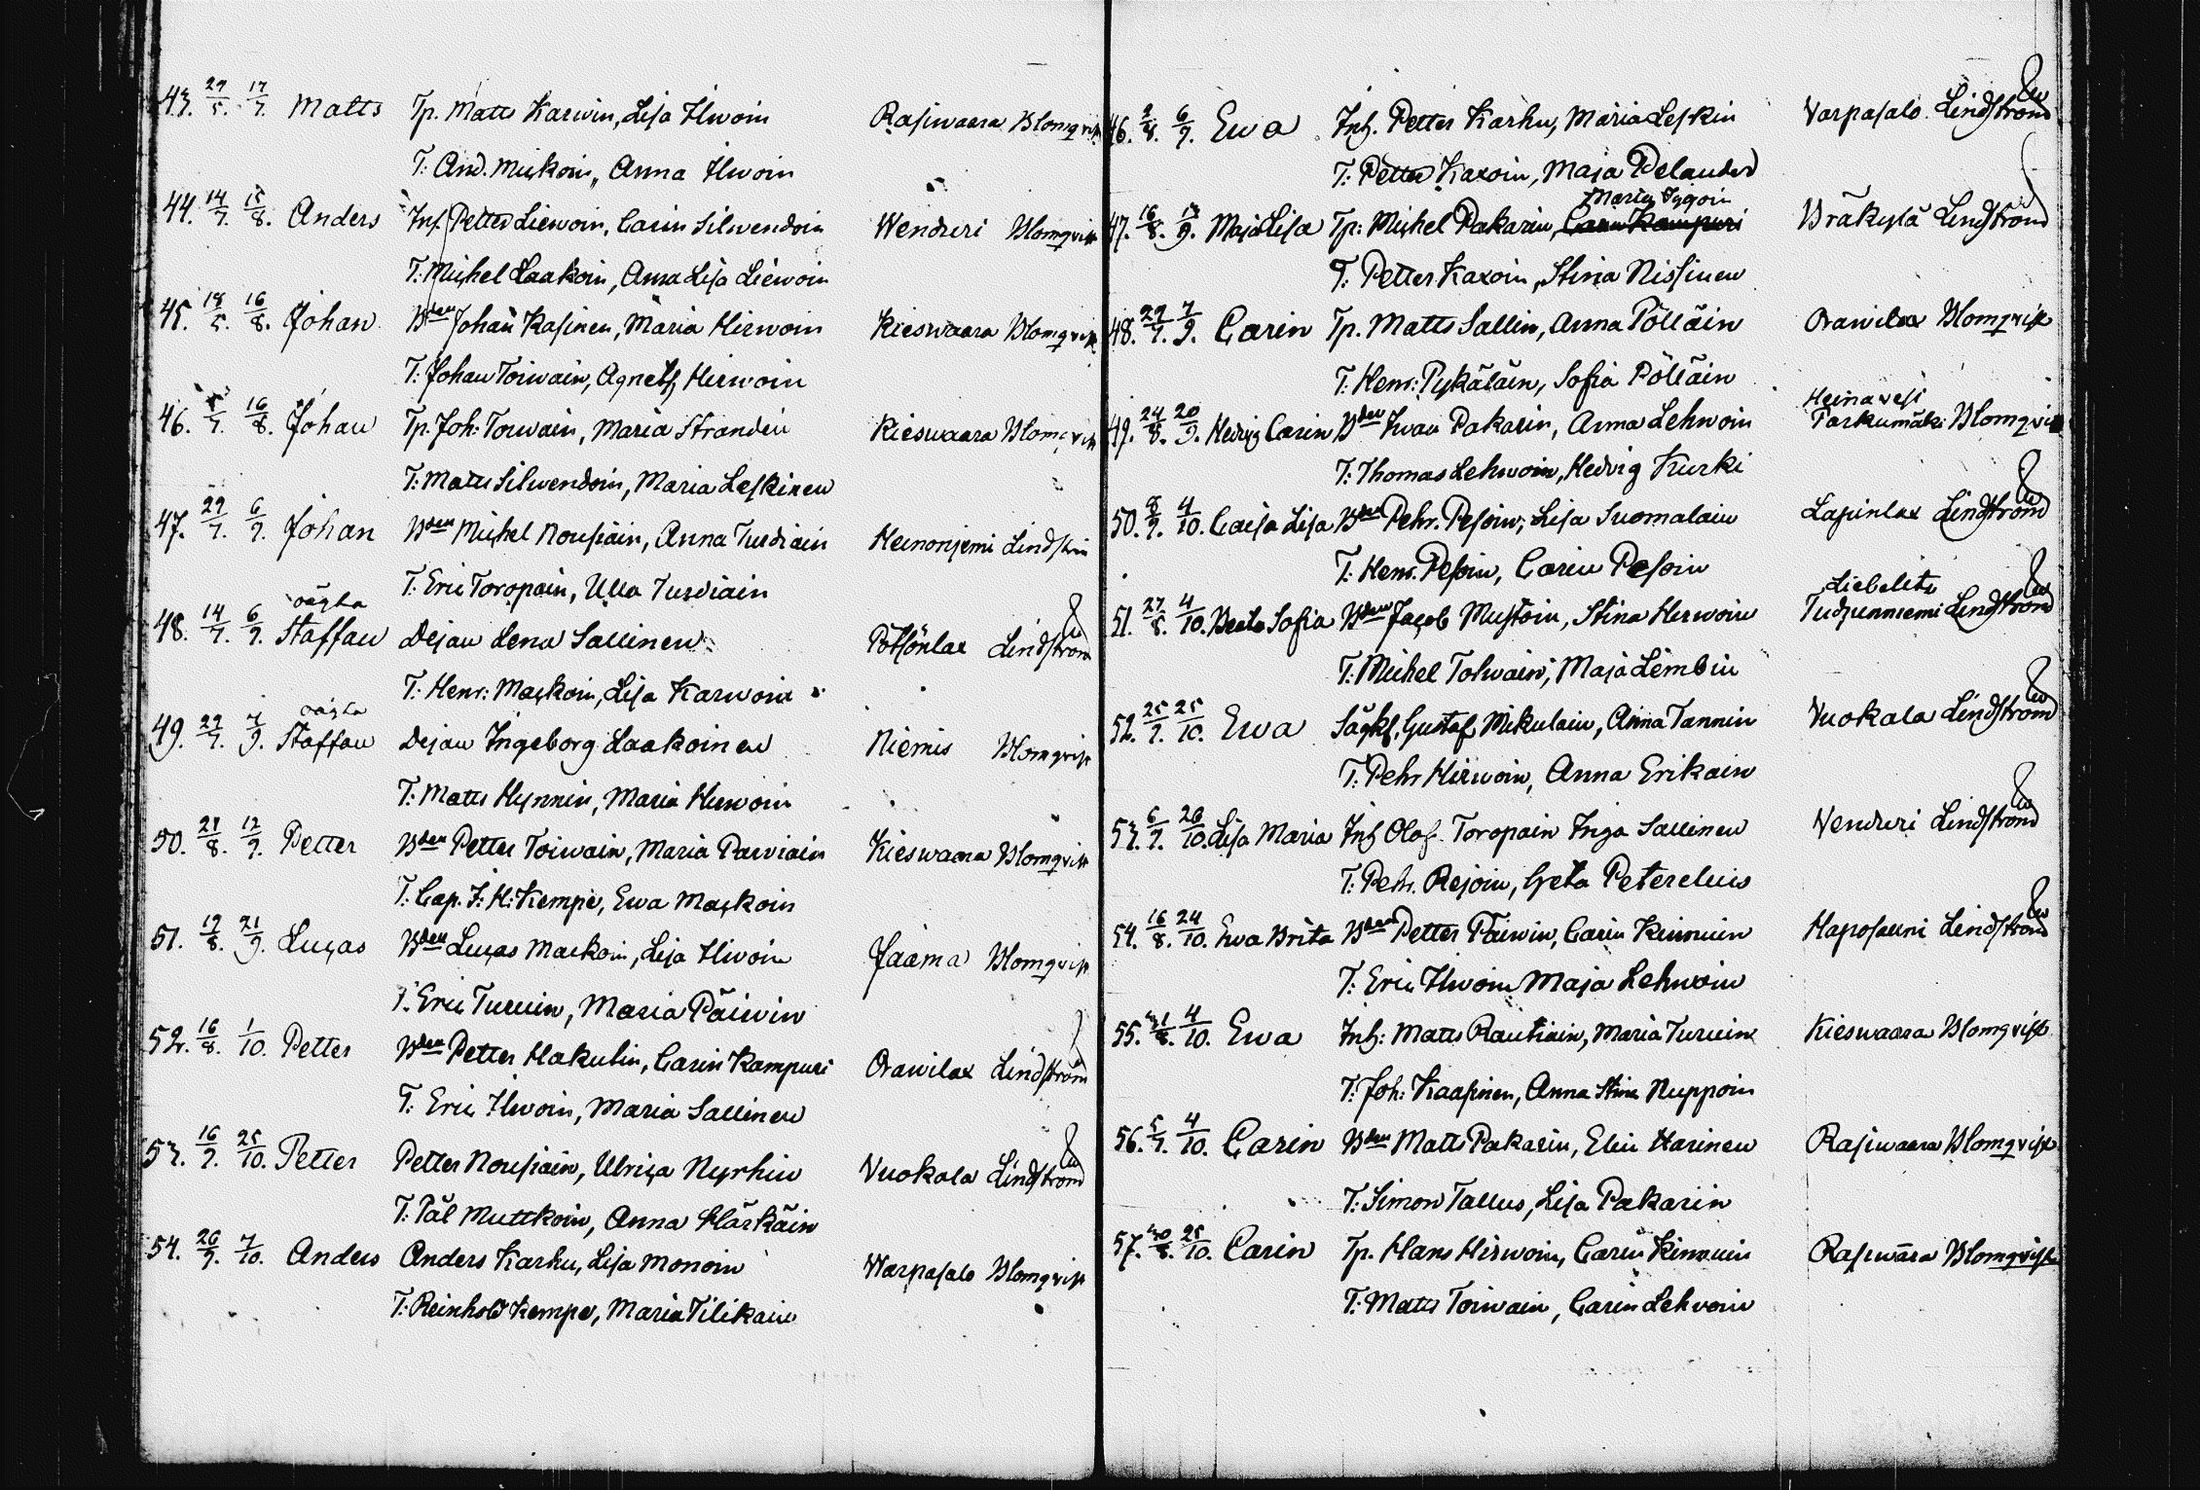 43. 27/5. 17/7. Matts Tp. Matts Karwin, Lisa Ilwoin Rasiwaara Blomqvist
T: And. Muskoin, Anna Ilwoin
44. 14/7. 15/8. Anders Inh. Petter Liewoin, Carin Silwendoin Wenduri Blomqvist
T: Michel Laakoin, Anna Lisa Liewoin
45. 18/5. 16/8. Johan Bden Johan Kasinen, Maria Hirwoin Kieswaara Blomqvist
T: Johan Toiwain, Agneth Hirwoin
46. 16/8. Johan Tp. Joh: Toiwain, Maria Strandin Kieswaara Blomqvist
T: Matts Silwendoin, Maria Leskinen
47. 29/7. 6/9. Johan Bden Michel Nousiain, Anna Turdiain Heinonjemi Lindström
T: Eric Toropain, Ulla Turdiain
oägta
48. 14/7. 6/9. Staffan Dejan Lena Sallinen Pötsönlax Lindström
T: Henr: Maskoin, Lisa Karwoin
oägta
49. 22/7. 7/9. Staffan Dejan Ingeborg Laakoinen Niemis Blomqvist
T: Matts Hynnin, Maria Hirwoin
50. 21/8. 12/9. Petter Bden Petter Toiwain, Maria Parviain Kieswaara Blomqvist
T: Cap. J: H: Kempe, Ewa Maskoin
51. 19/8. 21/9. Lucas Bden Lucas Maskoin, Lisa Ilwoin Jaama Blomqvist
T: Eric Turuin, Maria Päiwin
52. 16/8. 1/10. Petter Bden Petter Hakulin, Carin Kampuri Orawilax Lindström
T: Eric Ilwoin, Maria Sallinen
53. 16/9. 25/10. Petter Petter Nousiain, Ulrica Nyrhin Vuokala Lindström
T: Pål Muttkoin, Anna Härkäin
54. 26/9. 7/10. Anders Anders Karhu, Lisa Monoin Warpasalo Blomqvist
T: Reinhold Kempe, Maria Tilikain
46. 2/8. 6/9. Ewa Inh. Petter Karhu, Maria Leskin Varpasalo Lindström
T: Petter Kaxoin, Maja Pelander
Maria
47. 16/8. 13/9. Maja Lisa Tp: Michel Pakarin, Carin Kampuri Bräkylä Lindström
T: Petter Kaxoin, Stina Nissinen
48. 29/7. 7/9. Carin Tp. Matts Sallin, Anna Pölläin Orawilax Blomqvist
T: Henr: Pykäläin, Sofia Pölläin
Heinavesi
49. 24/8. 20/9. Hedvig Carin Bden Iwan Pakarin, Anna Lehwoin Parkumäki Blomqvist
T: Thomas Lehwoin, Hedvig Kurki
50. 8/9. 4/10. Caisa Lisa Bden Pehr. Pesoin, Lisa Suomalain Lapinlax Lindström
T: Henr. Pesoin, Carin Pesoin
Liebelits
51. 27/8. 4/10. Beata Sofia Bden Jacob Mustoin, Stina Hirwoin Lindström
T: Michel Tolwain, Maja Lembin
52. 25/9. 25/10. Ewa Gustaf Mikulain, Anna Tannin Vuokala Lindström
T: Pehr Hirwoin, Anna Erikain
53. 6/9. 26/10. Lisa Maria Inh Olof Toropain Inga Sallinen Venduri Lindström
T: Pehr. Rejoin, Greta Peterelius
54. 16/8. 24/10. Ewa Brita Bden Petter Päiwin, Carin Kinnuin Haposaari Lindström
T: Eric Ilwoin Maja Lehwoin
55. 31/8. 4/10. Ewa Inh: Matts Rautiain, Maria Turuin Kieswaara Blomqvist
T: Joh: Kaasinen, Anna Stina Nuppoin
56. 5/9. 4/10. Carin Bden Matts Pakarin, Elin Harinen Rasiwaara Blomqvist
T: Simon Tallus, Lisa Pakarin
57. 30/8. 25/10. Carin Tp. Hans Hirwoin, Carin Kinnuin Rasiwaara Blomqvist
T: Matts Toiwain, Carin Lehwoin